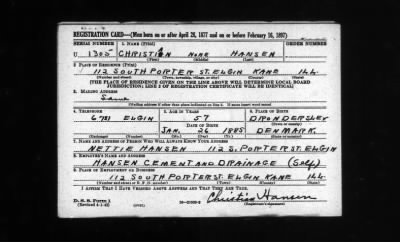 REGISTRATION CARD—(Men born on or after April 28, 1877 and on or before February 16, 1897)
SERIAL NUMBER 1. NAME (Print) ORDER NUMBER
U 1305 CHRISTIAN NONE HANSEN
(First) (Middle) (Last)
2. PLACE OF RESIDENCE (Print)
112 SOUTH PORTER ST. ELGIN KANE ILL.
(Number and street) (Town, township, village, or city) (County) (State)
[THE PLACE OF RESIDENCE GIVEN ON THE LINE ABOVE WILL DETERMINE LOCAL BOARD
JURISDICTION; LINE 2 OF REGISTRATION CERTIFICATE WILL BE IDENTICAL]
3. MAILING ADDRESS
Same
[Mailing address if other than place indicated on line 2. If same insert word same]
4. TELEPHONE 5. AGE IN YEARS 6. PLACE OF BIRTH
57 DRONDERSLEV
DATE OF BIRTH (Town or county)
ELGIN JAN. 26 1885 DENMARK
(Exchange) (Number) (Mo.) (Day) (Yr.) (State or country)
7. NAME AND ADDRESS OF PERSON WHO WILL ALWAYS KNOW YOUR ADDRESS
NETTIE HANSEN 112 S. PORTER ST. ELGIN
8. EMPLOYER'S NAME AND ADDRESS
HANSEN CEMENT AND DRAINAGE (Self)
9. PLACE OF EMPLOYMENT OR BUSINESS
112 SOUTH PORTER ST. ELGIN KANE ILL
(Number and street or R. F. D. number) (Town) (County) (State)
I AFFIRM THAT I HAVE VERIFIED ABOVE ANSWERS AND THAT THEY ARE TRUE.
D. S. S. Form 1
(Revised 4-1-42) Christian Hansen
(Registrant's signature)